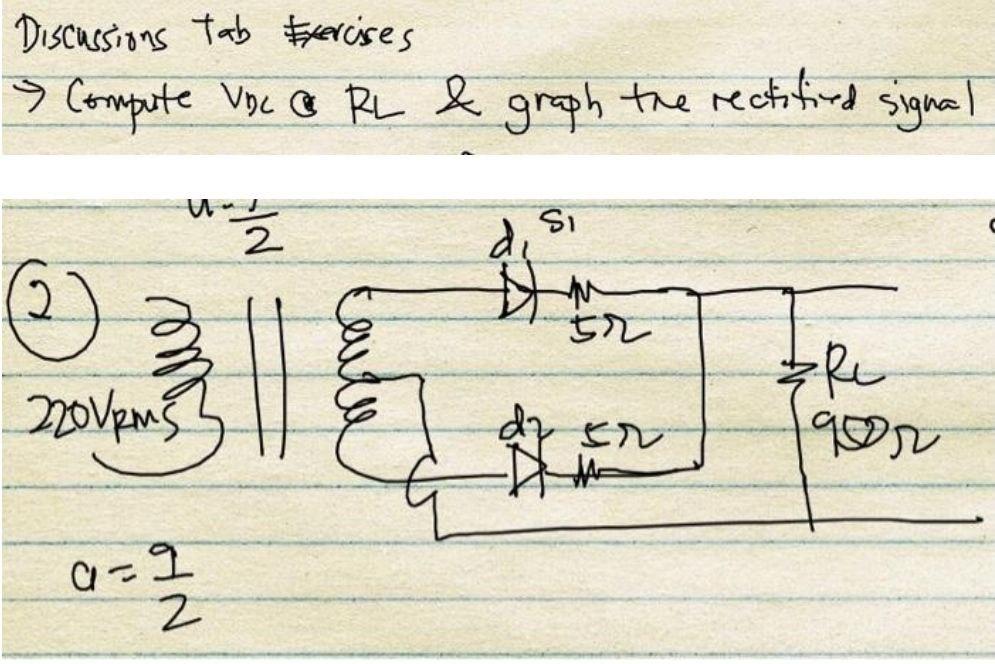 Discussions Tab Exercises
→ Compute VDC @ RL & graph the rectified signal
2
d1 Si
2
5Ω
RL
220VRMS
d2 5Ω
950Ω
a = 9/2